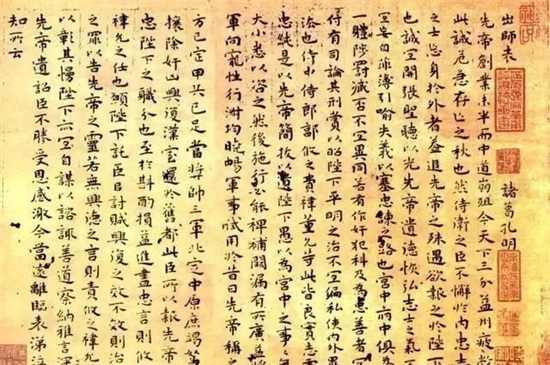 出師表
諸葛孔明
先帝創業未半而中道崩殂今天下三分益州疲敝
此誠危急存亡之秋也然侍衛之臣不懈於内忠志
之士忘身於外者蓋追先帝之殊遇欲報之於陛下
也誠宜開張聖聽以光先帝遺德恢弘志士之氣
宜妄自菲薄引喻失義以塞忠諫之路也宮中府中俱為
一體陟罰臧否不宜異同若有作奸犯科及為忠善者
付有司論其刑賞以昭陛下平明之治不宜偏私使内外
法也侍中侍郎郭攸之費禕董允等此皆良實志慮
忠純是以先帝簡拔以遺陛下愚以為宮中之事
大小悉以咨之然後施行必能裨補闕漏有所廣益
軍向寵性行淑均曉暢軍事試用於昔日先帝稱之
方已定甲兵已足當將帥三軍北定中原庶竭駑
攘除奸凶興復漢室還於舊都此臣所以報先帝
忠陛下之職分也至於斟酌損益進盡忠言則攸
禕允之任也願陛下託臣以討賊興復之效不效則治
之罪以告先帝之靈若無興德之言則責攸之禕允
以彰其慢陛下亦宜自謀以諮諏善道察納雅言深
先帝遺詔臣不勝受恩感激今當遠離臨表涕泣
知所云